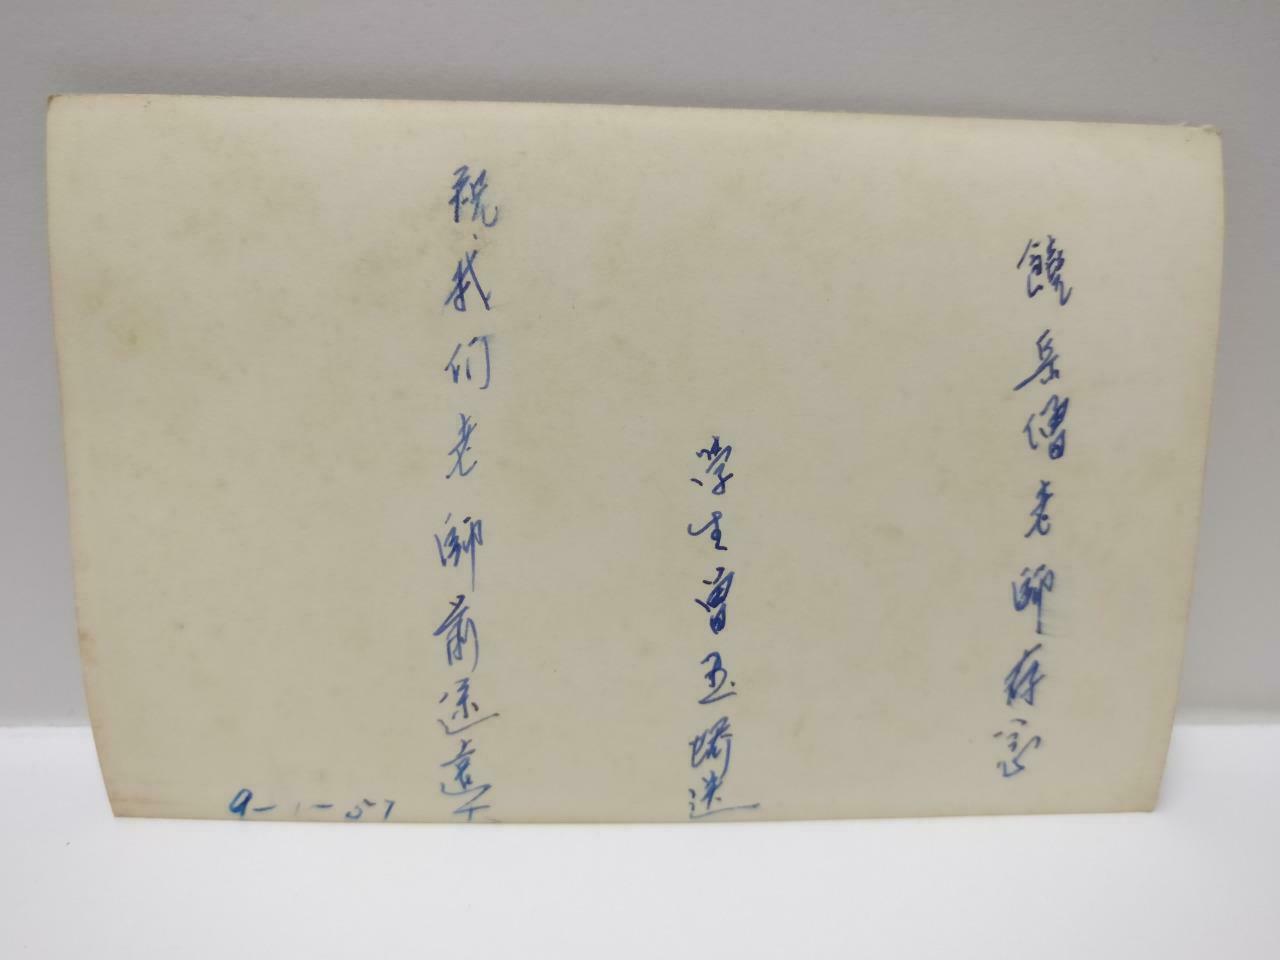 饒岳僧老師存念
学生曾玉嬌送
祝我们老師前途遠大
9-1-57